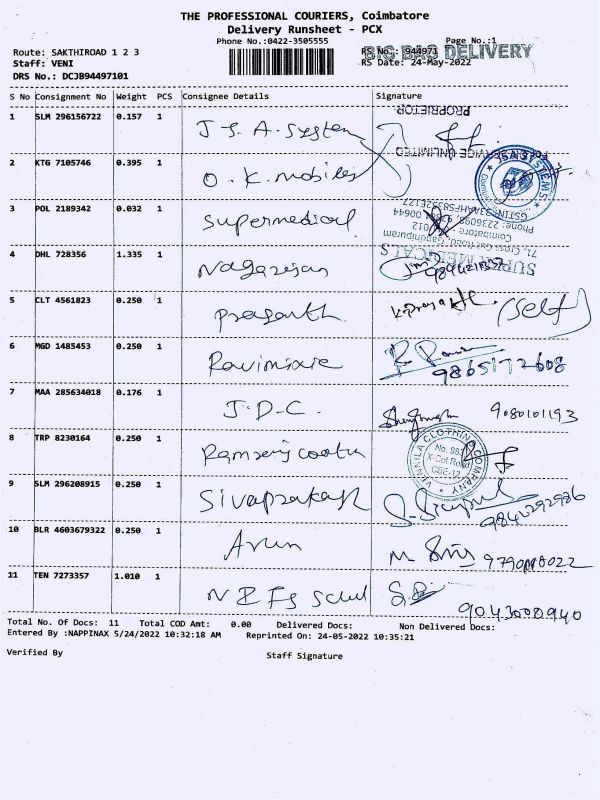 THE PROFESSIONAL COURIERS, Coimbatore
Delivery Runsheet - PCX
Phone No.:0422-3505555
Page No.:1
Route: SAKTHIROAD 1 2 3
RS No.: 944971
BIG BAG DELIVERY
Staff: VENI
RS Date: 24-May-2022
DRS No.: DCJB94497101
S No Consignment No Weight PCS Consignee Details Signature
1 SLM 296156722 0.157 1 J S. A. System
PROPRIETOR
2 KTG 7105746 0.395 1 O. K. mobiles
SERVICE UNLIMITED
JSA SYSTEMS
3 POL 2189342 0.032 1 Supermedical
SUPER MEDICALS
71, Cross Cut Road, Gandhipuram
Coimbatore
4 DHL 728356 1.335 1 Nagarajan
5 CLT 4561823 0.250 1 Prasanth (Self)
6 MGD 1485453 0.250 1 9865172608
7 MAA 285634018 0.176 1 J. D. C. 9080101193
8 TRP 8230164 0.250 1
VANILA CLOTHING COMPANY
X-Cut Road
CBE-12
9 SLM 296208915 0.250 1 Sivaprakash
10 BLR 4603679322 0.250 1 Arun
11 TEN 7273357 1.010 1 9043000940
Total No. Of Docs: 11 Total COD Amt: 0.00 Delivered Docs: Non Delivered Docs:
Entered By :NAPPINAX 5/24/2022 10:32:18 AM Reprinted On: 24-05-2022 10:35:21
Verified By Staff Signature